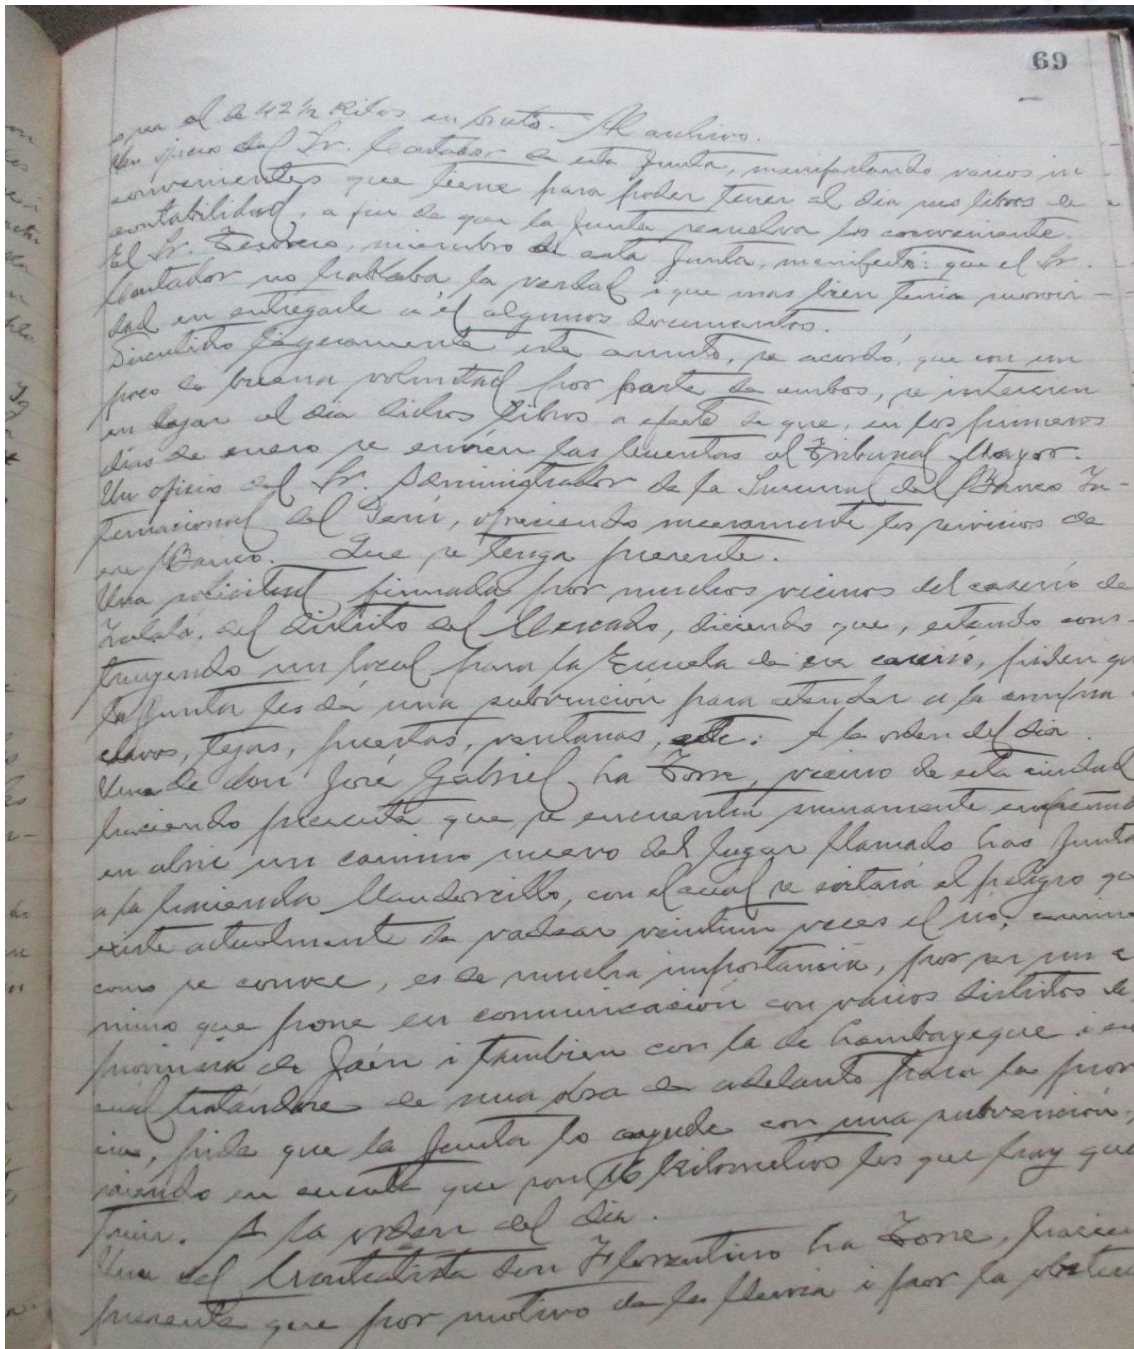 69
sea el de 42½ kilos en bruto. Al archivo.
Un oficio del Sr. Contador de esta Junta, manifestando varios in-
convenientes que tiene para poder tener al dia sus libros de
contabilidad, a fin de que la Junta resuelva los conveniente.
El Sr. Tesorero, miembro de esta Junta, manifestó: que el Sr.
Contador no hablaba la verdad i que mas bien tenia morosi-
dad en entregarle a él algunos documentos.
Discutido ligeramente este asunto, se acordó, que con un
poco de buena voluntad por parte de ambos, se
en dejar al dia dichos libros a efecto de que, en los primeros
dias de enero se envíen las Cuentas al Tribunal Mayor.
Un oficio del Sr. Administrador de la Sucursal del Banco In-
ternacional del Perú, ofreciendo nuevamente los servicios de
ese Banco. Que se tenga presente.
Una solicitud firmada por muchos vecinos del caserío de
del distrito del Mercado, diciendo que, estando cons-
truyendo un local para la Escuela de ese caserío, piden qu
la Junta les dé una subvención para atender a la compra
clavos, tejas, puertas, ventanas, etc. A la orden del dia.
Una de don José Gabriel La Torre, vecino de esta ciudad
haciendo presente que se encuentra sumamente empeñado
en abrir un camino nuevo del lugar llamado Las Juntas
a la hacienda Llandorcillo, con el cual se evitará el peligro qu
existe actualmente de vadear veintiun veces el río, camino
como se conoce, es de mucha importancia, por ser un c
mino que pone en comunicación con varios distritos de
provincia de Jaén i tambien con la de Lambayeque i
cual tratándose de una obra de adelanto para la prov
cia, pide que la Junta lo ayude con una subvención,
niendo en cuenta que son 16 kilometros los que hay que
A la orden del dia.
Una del Contratista don Florentino La Torre, hacien
presente que por motivo de la lluvia i por la